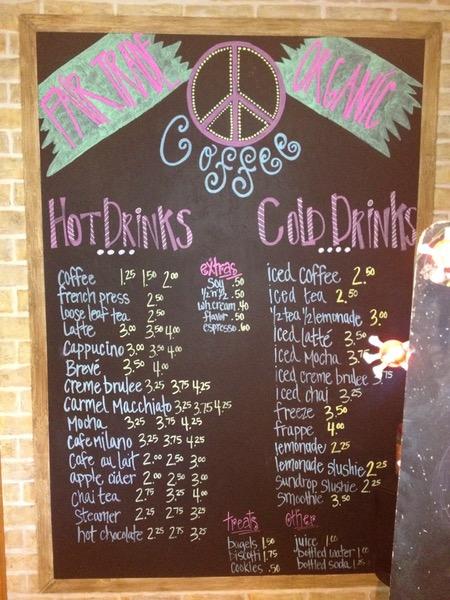 FAIR TRADE
ORGANIC
Coffee
HOT DRINKS
coffee 1.25 1.50 2.00
french press 2.50
loose leaf tea 2.50
Latte 3.00 3.50 4.00
Cappucino 3.00 3.50 4.00
Brevé 3.50 4.00
creme brulee 3.25 3.75 4.25
carmel Macchiato 3.25 3.75 4.25
Mocha 3.25 3.75 4.25
Cafe Milano 3.25 3.75 4.25
Cafe au lait 2.00 2.50 3.00
apple cider 2.00 2.50 3.00
chai tea 2.75 3.25 4.00
Steamer 2.25 2.75 3.25
hot chocolate 2.25 2.75 3.25
extras
Soy .50
1/2 n 1/2 .50
wh.cream .40
flavor .50
espresso .60
COLD DRINKS
iced coffee 2.50
iced tea 2.50
1/2 tea 1/2 lemonade 3.00
iced latté 3.50
iced Mocha 3.75
iced creme brulee 3.75
iced chai 3.25
freeze 3.50
frappe 4.00
lemonade 2.25
lemonade slushie 2.25
sundrop slushie 2.25
smoothie 3.50
treats
bagels 1.50
biscotti 1.75
cookies .50
other
juice 1.00
bottled water 1.00
bottled soda 1.25